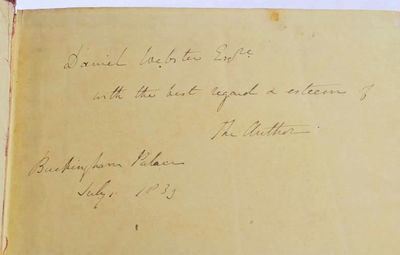 Daniel Webster Esqre
with the best regard & esteem of
The Author.
Buckingham Palace
July 1839